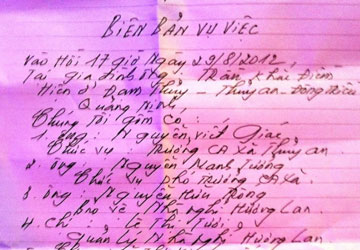 BIÊN BẢN VỤ VIỆC
Vào Hồi 17 giờ Ngày 29/8/2012,
Tại gia đình ông: Trần Khải Điềm
Hiện ở Đạm Thủy - Thủy An - Đông Triều
Quảng Ninh,
Chúng tôi gồm có:
1. ông: Nguyễn Viết Giác
Chức vụ: Trưởng CA Xã Thủy an
2. ông: Nguyễn Mạnh Tường
Chức vụ: Phó trưởng CA Xã.
3. ông: Nguyễn Hữu Trọng
Bảo vệ: Nhà nghỉ Hương Lan.
4. Chị: Lê Thị Tươi.
Quản Lý Nhà Nghỉ Hương Lan.